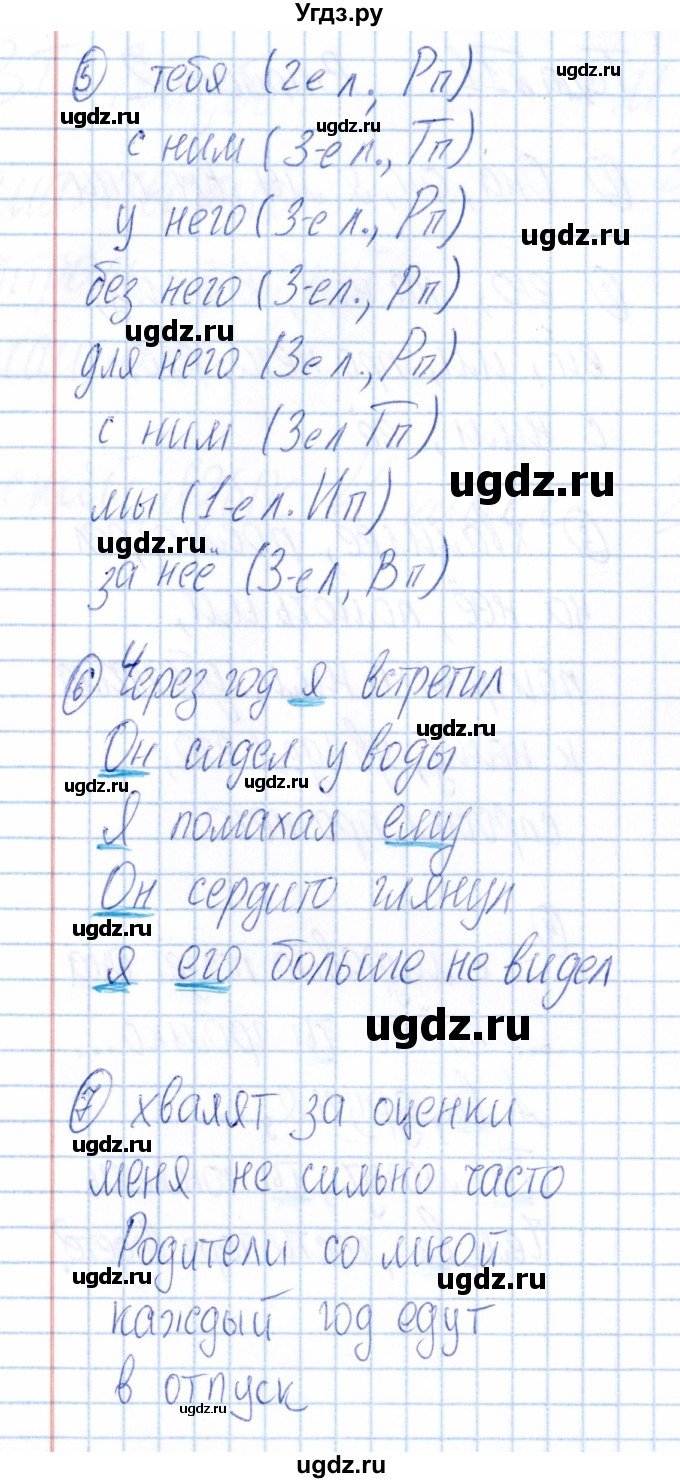 Угдз.ру
5 тебя (2е л., Рп)
ugdz.ru
ugdz.ru
ugdz.ru
с ним (3-е л., Тп).
у него (3-е л., Рп)
ugdz.ru
без него (3-ел., Рп)
ugdz.ru
для него (3е л., Рп)
с ним (3ел Тп)
ugdz.ru
мы (1-е л. Ип)
ugdz.ru
за неё (3-ел, Вп)
6 Через год я встретил
ugdz.ru
Он сидел у воды
ugdz.ru
Я помахал ему
Он сердито глянул
ugdz.ru
я его больше не видел
ugdz.ru
7 хвалят за оценки
ugdz.ru
меня не сильно часто
Родители со мной
ugdz.ru
ugdz.ru
каждый год едут
в отпуск
ugdz.ru
ugdz.ru